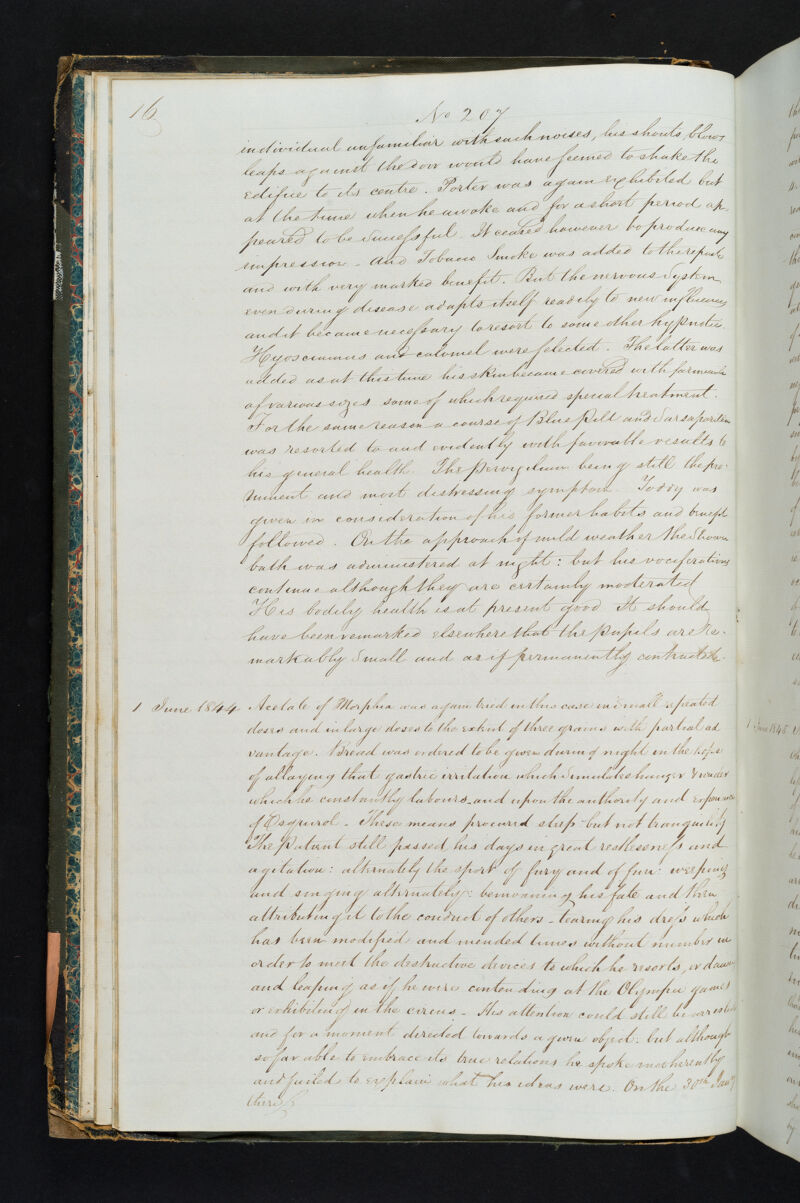 16
No 207
individual unfamiliar with such noises, his shouts, blows
leaps against the door would have seemed to shake the
edifice to its centre. Porter was again exhibited but
at the time when he awoke and for a short period ap-
peared to be successful. It ceased however to produce any
impression - and Tobacco Smoke was added to the
and with very marked benefit. But the nervous system
even during disease adapts itself readily to new influences
and it became necessary to resort to some other hypnotic.
Hyosciamus and calomel were selected. The latter was
added as at this time his skin became covered with
of various sizes some of which required special treatment.
For the same reason a course of Blue Pill and Sarsaparilla
was resorted to and evidently with favorable results to
his general health. The pervigilium being still the pro-
minent and most distressing symptom. Toddy was
given in consideration of his former habits and benefit
followed. On the approach of mild weather the Shower
bath was administered at night: but his vociferations
continue although they are certainly moderated
His bodily health is at present good It should
have been remarked elsewhere that the pupils are re-
markably small and as if permanently contracted.
1 June 1844 Acetate of Morphia was again tried in this case in small repeated
doses and in large doses to the extent of three grains with partial ad
vantage. Bread was ordered to be given during night in the hope
of allaying that gastric irritation which simulates hunger & under
which he constantly labours - and upon the authority and experience
of Esquirol - These means procured sleep but not tranquility
The Patient still passed his days in great restlessness and
agitation: alternately the sport of fury and of fun: weeping
and singing alternately: bemoaning his fate and then
attributing it to the conduct of others - tearing his dress which
has been modified and mended times without number in
order to meet the destructive devices to which he resorts, or
and leaping as if he were contending at the Olympic games
or exhibiting in the circus - His attention could still be arrested
and for a moment directed towards a given object: but although
so far able to embrace its true relations he spoke incoherently
and failed to explain what his ideas were. On the 30th Jany
there
1 June 1845